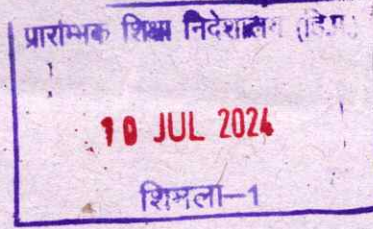 प्रारम्भिक शिक्षा निदेशालय (हि.प्र.)
10 JUL 2024
शिमला-1